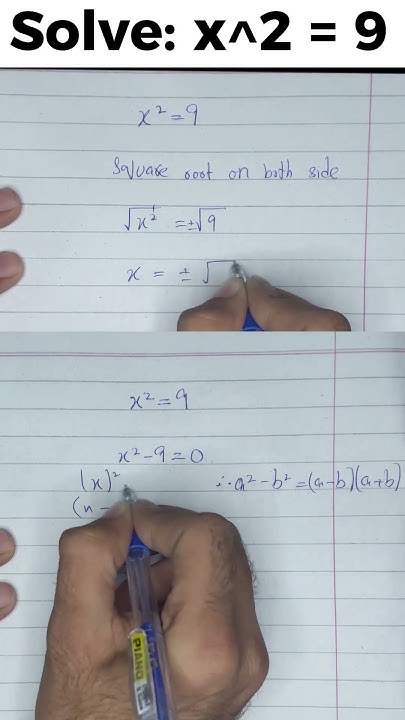 Solve: x^2 = 9
x² = 9
Square root on both side
√x² = ±√9
x = ± √
x² = 9
x² - 9 = 0
(x)² ∴ a² - b² = (a-b)(a+b)
(x -
PIANO